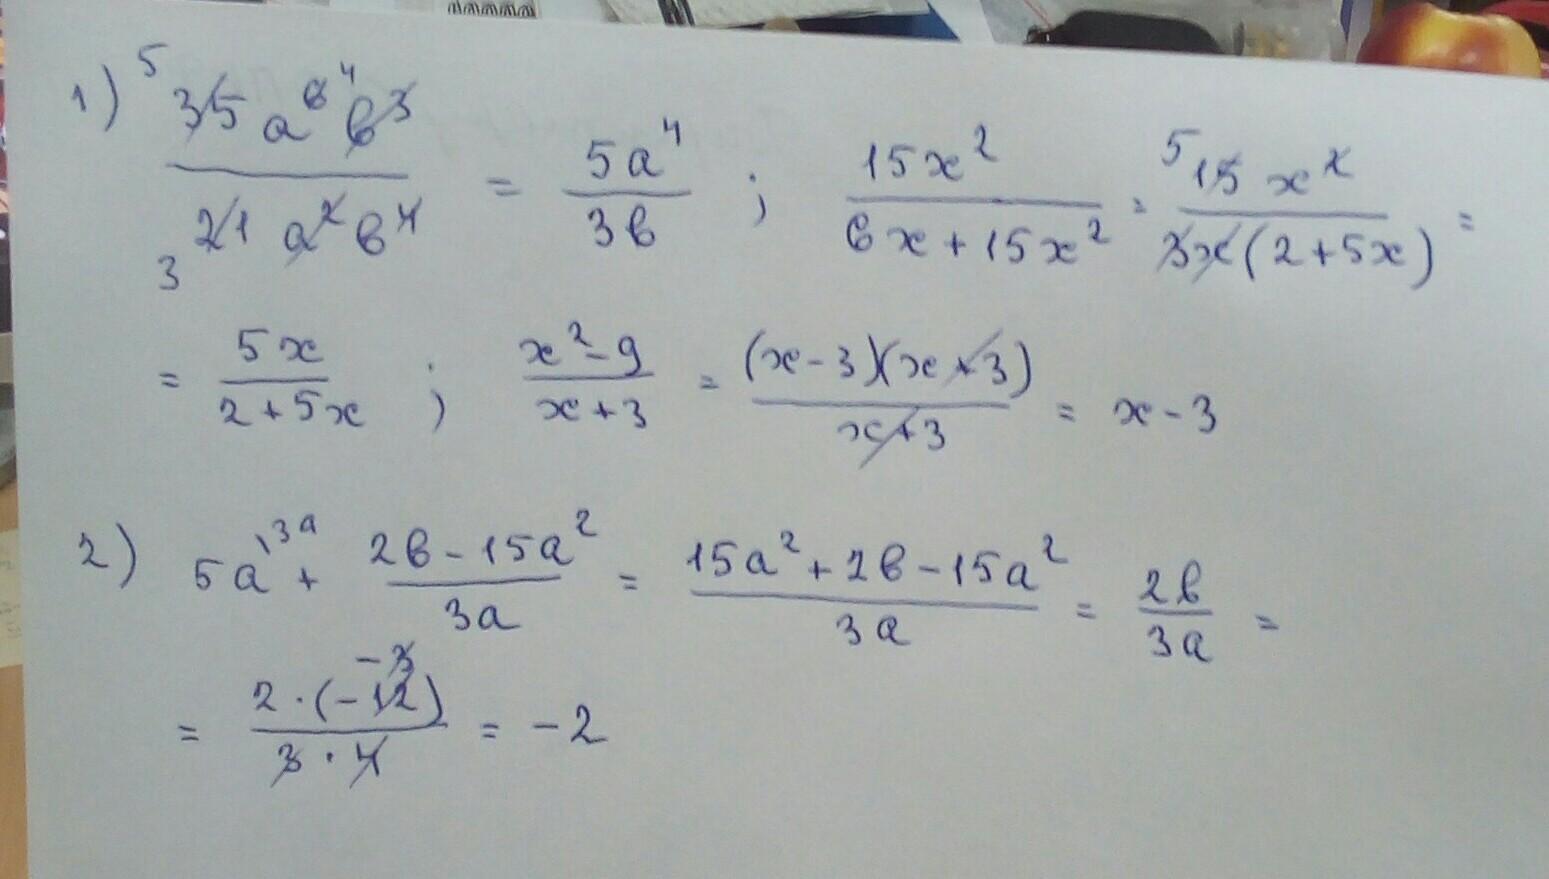 1) ⁵35a⁶⁴b³ / ₃21a²b⁴ = 5a⁴ / 3b ; 15x² / 6x+15x² = ⁵15x² / 3x(2+5x) =
= 5x / 2+5x ; x²-9 / x+3 = (x-3)(x+3) / x+3 = x-3
2) 5a^{13a} + 2b-15a² / 3a = 15a²+2b-15a² / 3a = 2b / 3a =
= 2·(-12)^{-3} / 3·4 = -2